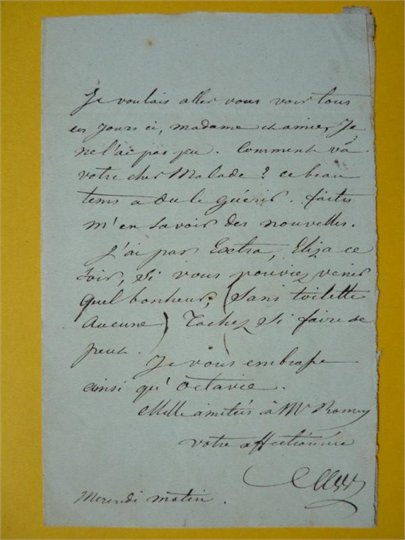 Je voulais aller vous voir tous
ces jours ci, madame et amie, Je
ne l'ai pas pu. Comment va
votre cher Malade ? ce beau
tems a du le guérir. faites
m'en savoir des nouvelles.
J'ai par Extra, Eliza ce
soir, si vous pouviez venir
quel bonheur, (sans toilette
Aucune) Tachez si faire se
peut.
Je vous embrasse
ainsi qu'Octavie.
Mille amitiés à Mr
votre affectionnée
Mercredi matin.